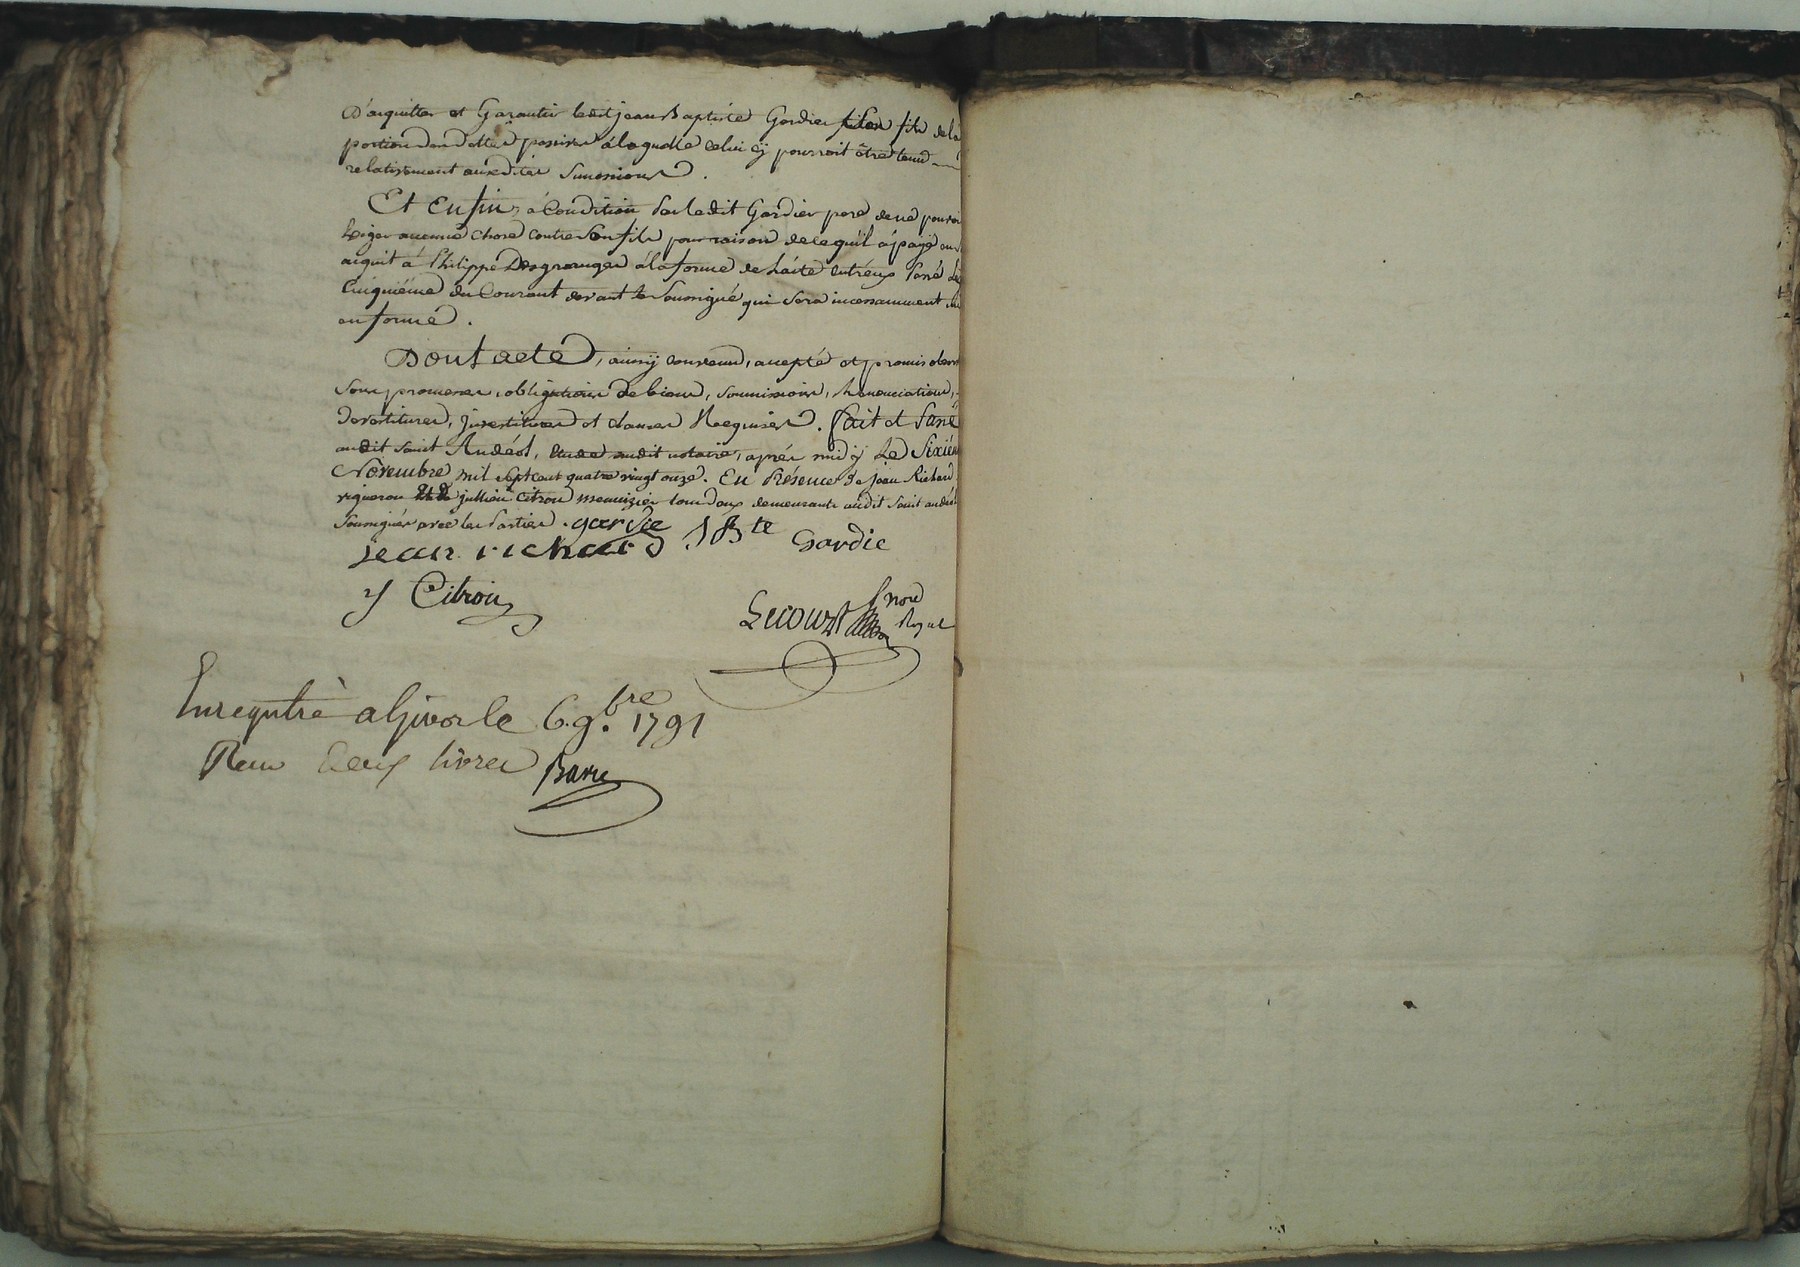 D'acquitter et Garantir ledit jean Baptiste Gardier fils de la
portion dans dettes passives á laquelle celui cÿ pourroit être tenu
relativement auxdites Successions.
Et enfin, à Condition par ledit Gardier pere de ne pouvoir
Exiger aucune chose contre Son fils pour raison de ce qu'il á payé en
acquit á Philippe Desgranges á la forme de l'acte entréux Passé Le
Cinquiéme du Courant devant le Soussigné qui sera incessamment
en forme.
Dont acte, ainsÿ convenu, accepté et promis observer
sous promesses, obligations de biens, soumissions, Renonciations,
devestitures, jnvestitures et clauses Requises. fait et Passé
audit saint Andéol, Etude dudit notaire, aprés midÿ Le Sixiéme
Novembre mil sept cent quatre vingt onze. En Présence de jean Richard
vigneron et de jullien Citron menuizier tous deux demeurants audit saint andéol
Soussignés avec les Parties. gardie
jean richard JBte Gardie
J Citron
Lecourt
nore
Royal
Enregistré a Givors le 6. 9.bre 1791
Reçu deux livres